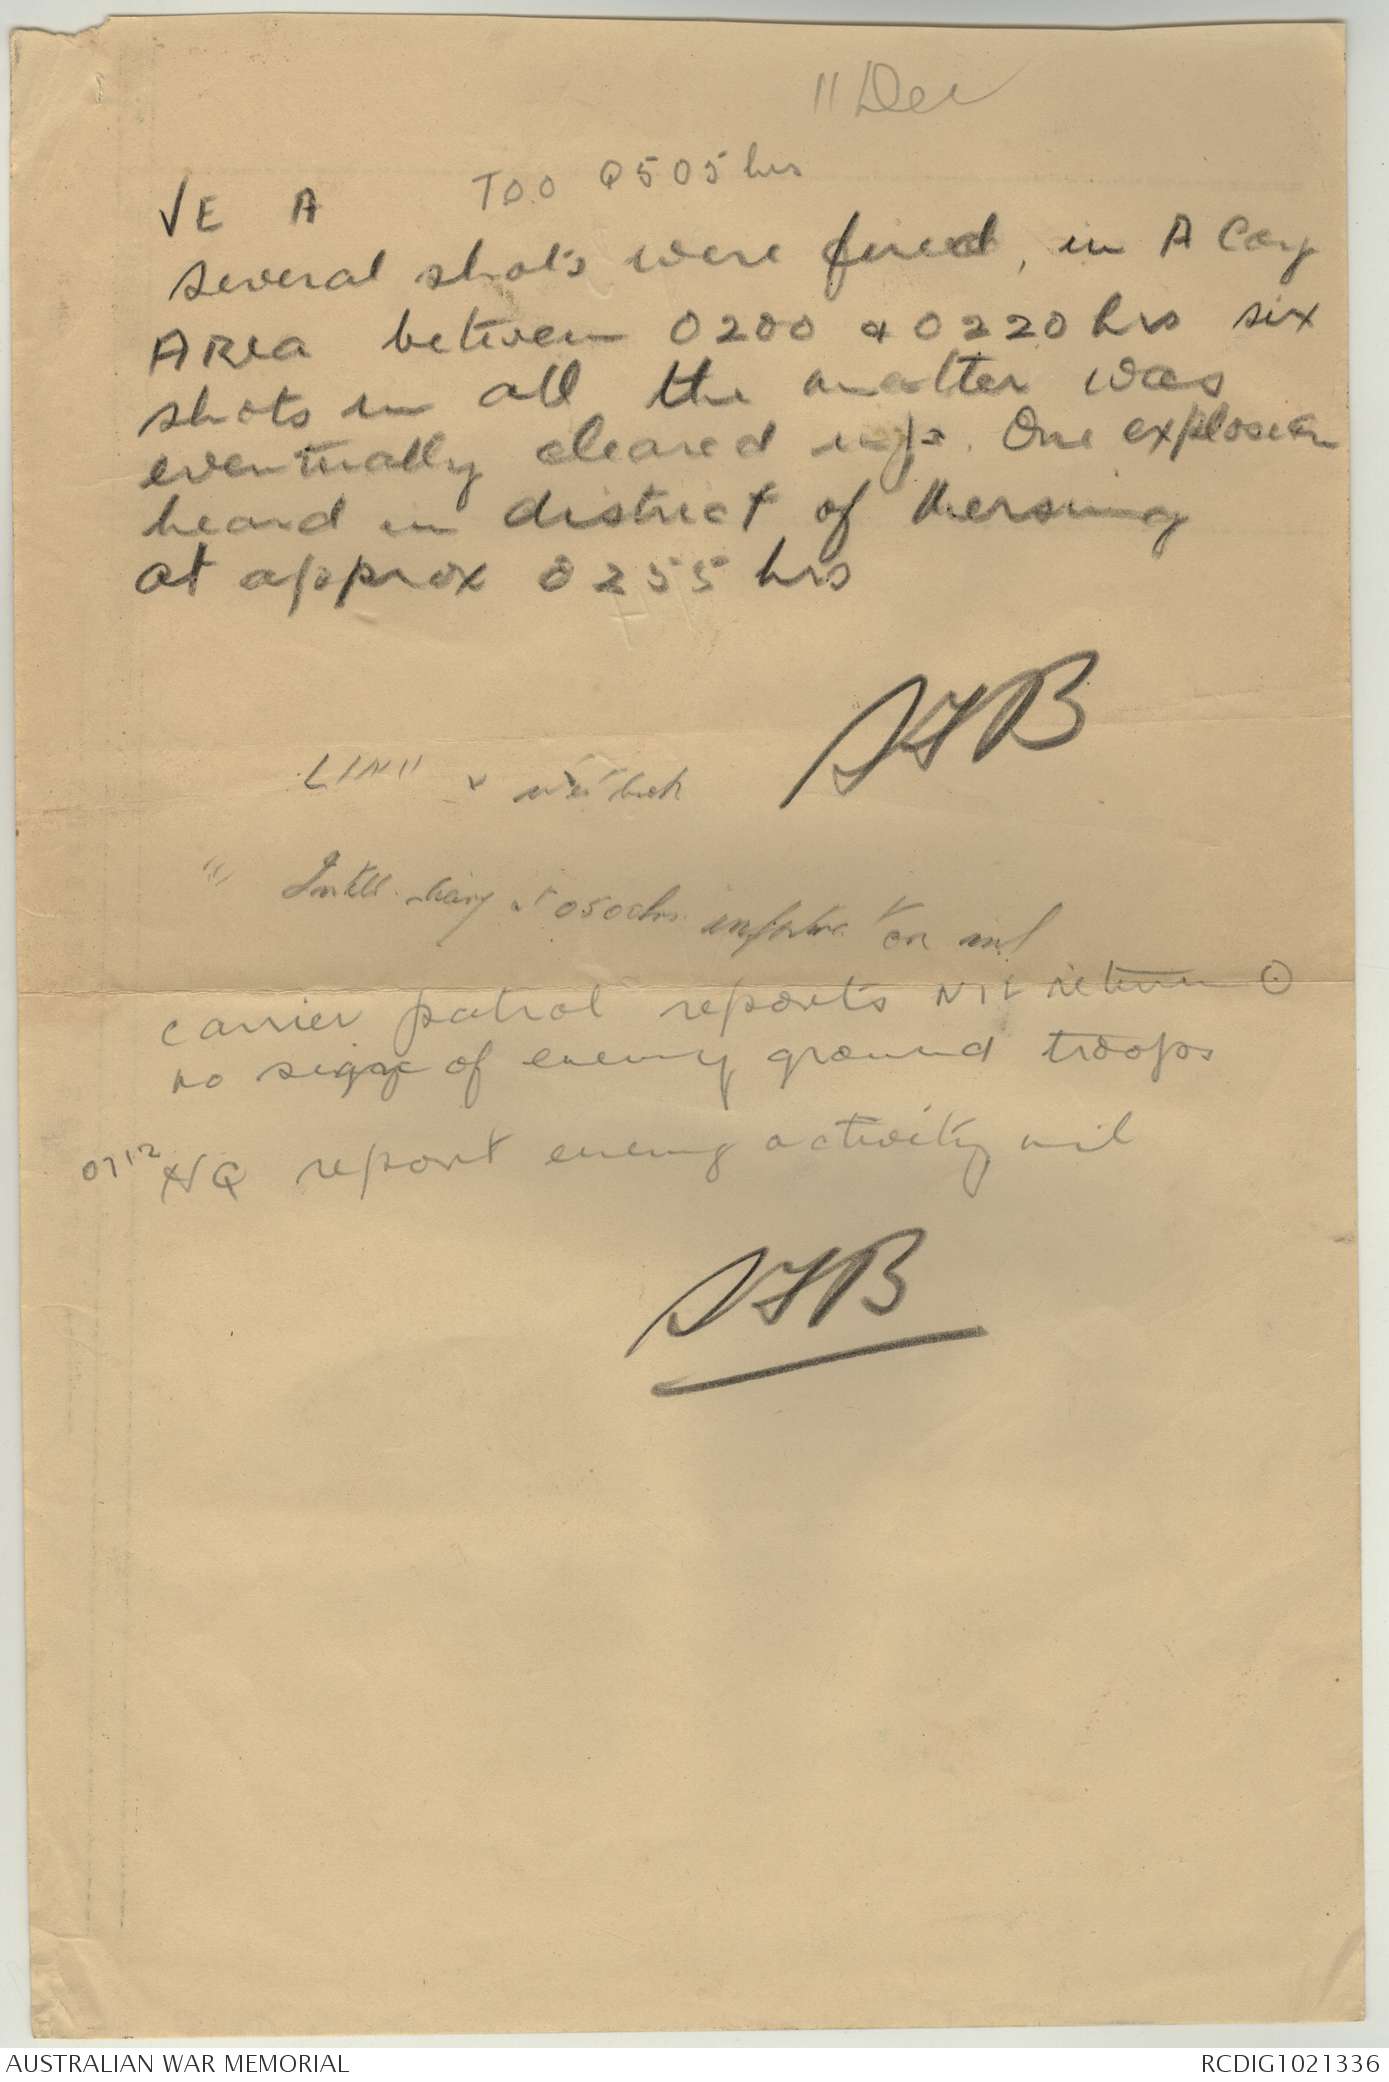 11 Dec
√E A TOO 0505 hrs
several shots were fired, in A Coy
AREA between 0200 & 0220 hrs six
shots in all the matter was
eventually cleared up. One explosion
heard in district of Mersing
at approx 0255 hrs
SFB
" Intell diary at 0500hrs information nil
carrier patrol reports NIL return ⊙
no sign of enemy ground troops
0712 HQ report enemy activity nil
SFB
AUSTRALIAN WAR MEMORIAL RCDIG1021336